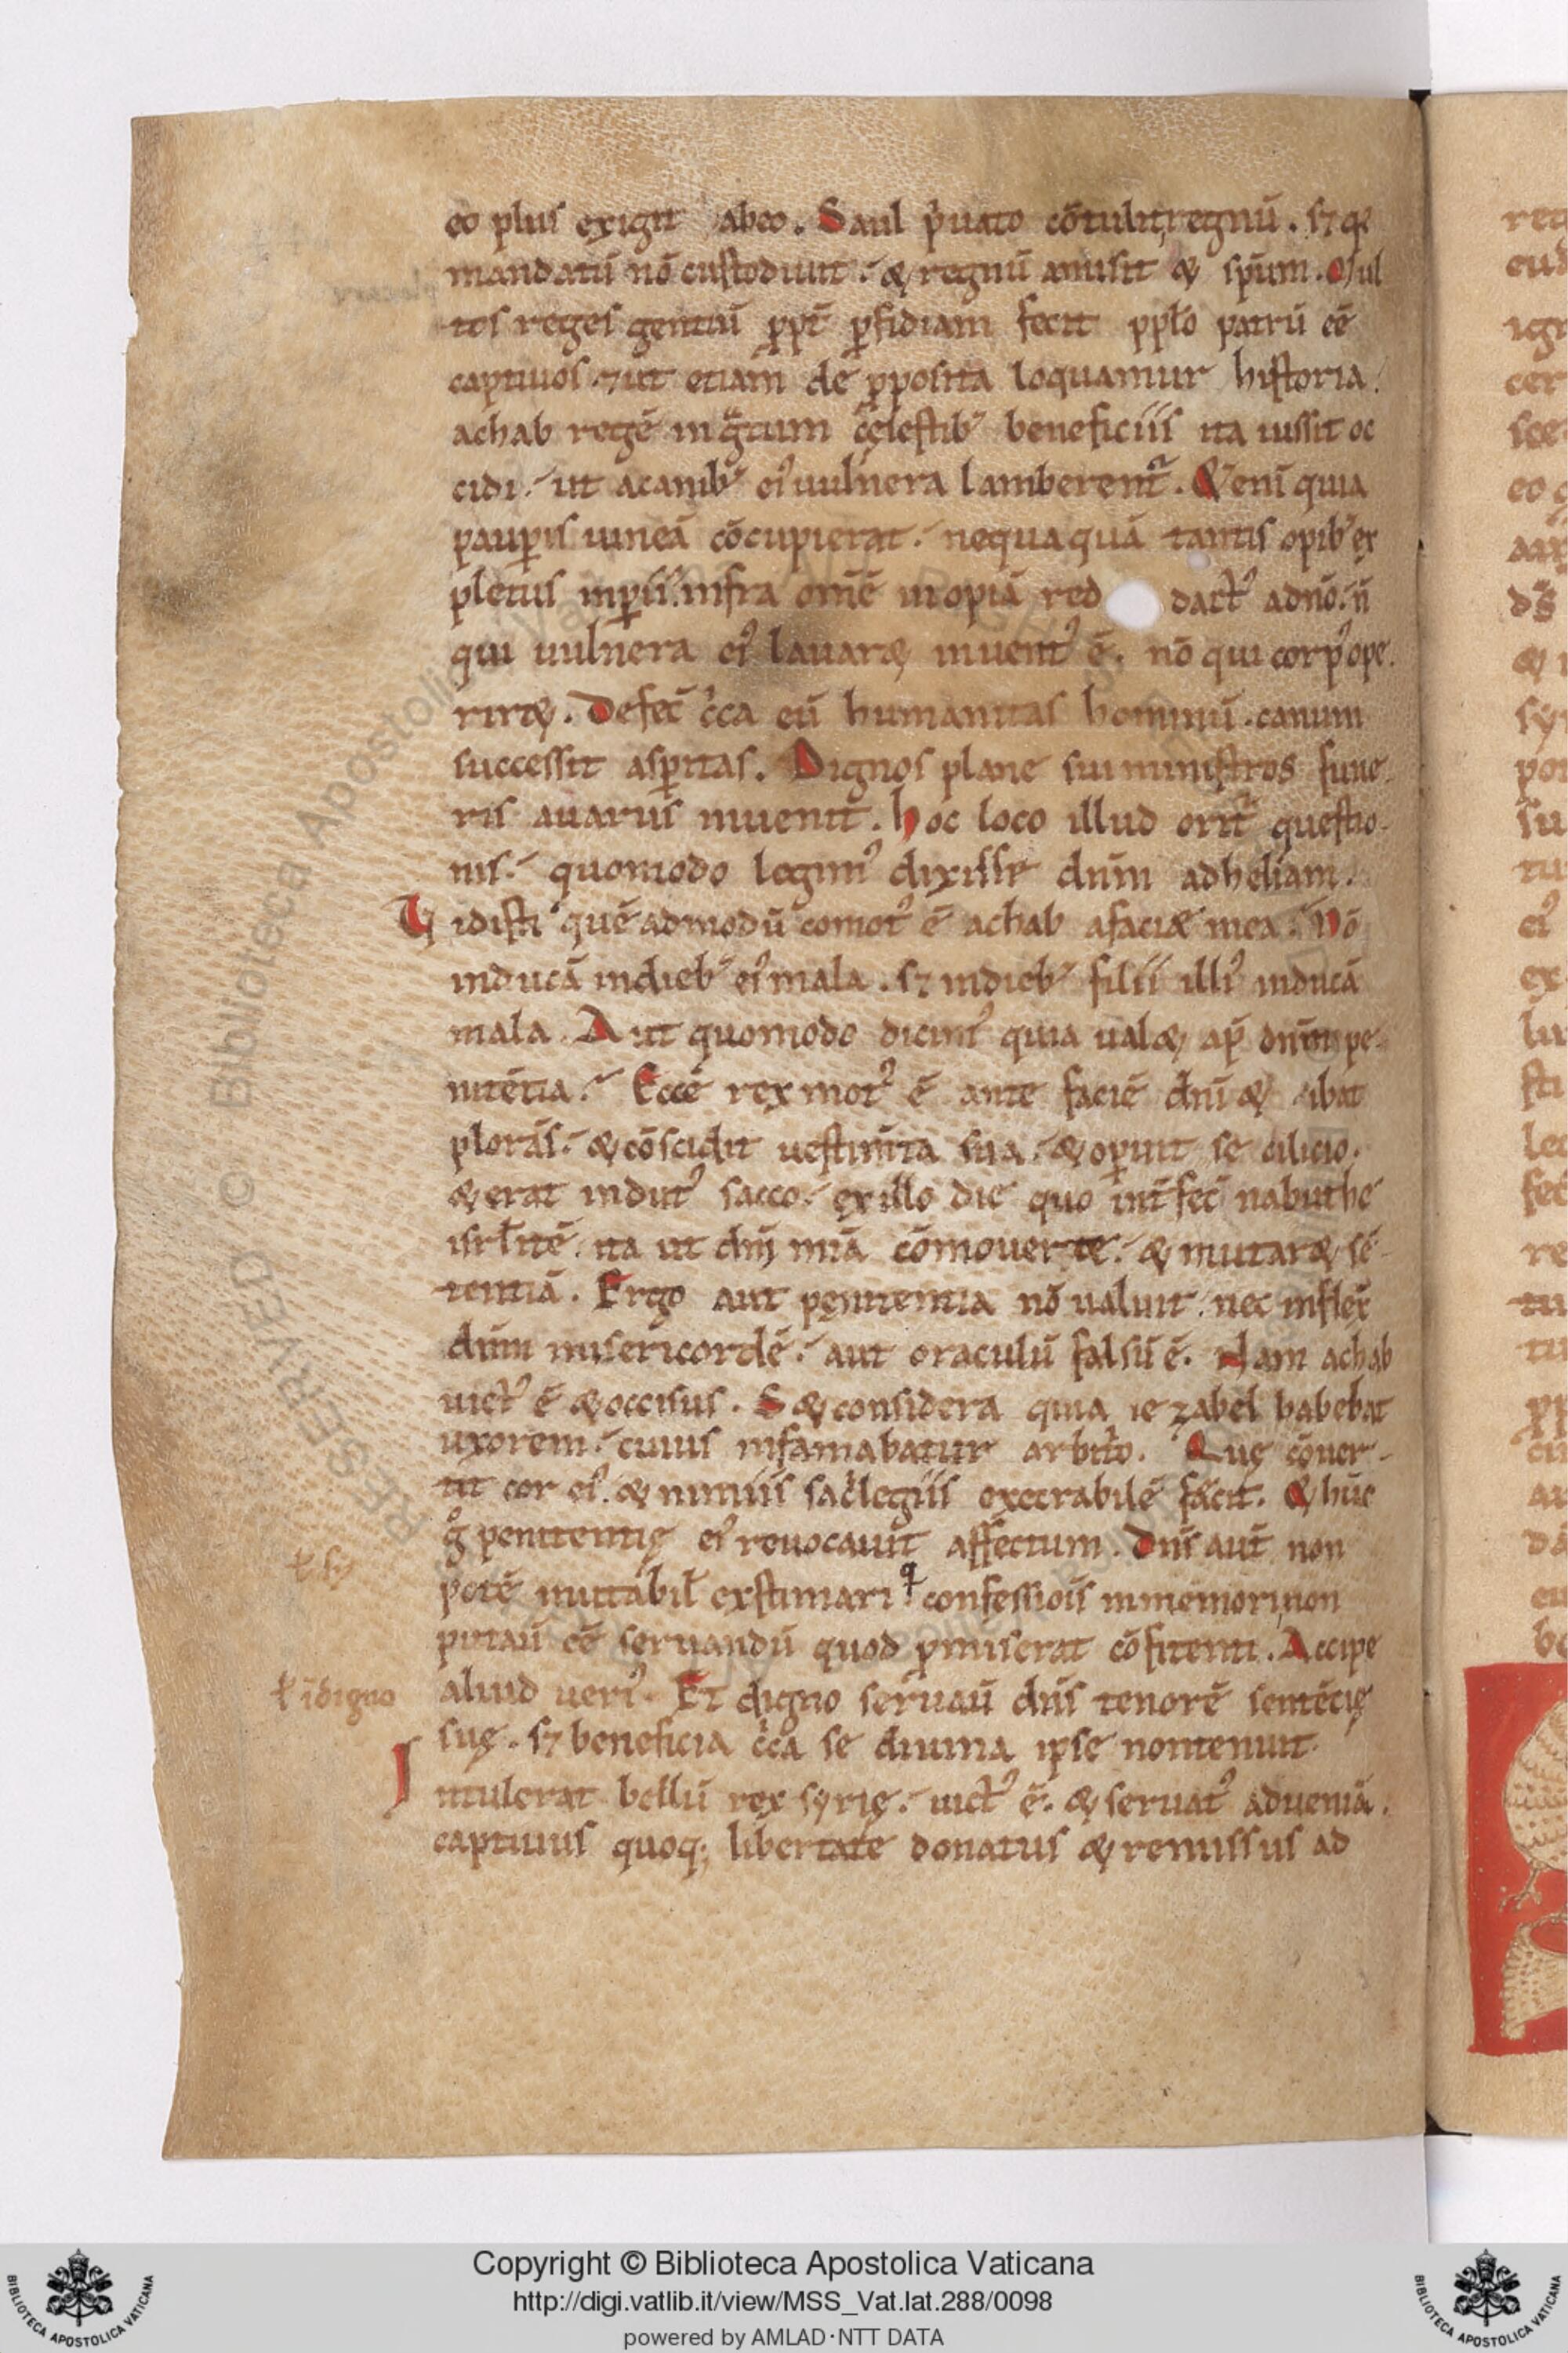 eo plus exigit abeo. Saul p̍uato cōtulit, regnū. sꝫ qꝫ
mandatū nō custodiuit. & regnū amisit & sp̄um. Mul
tos reges gentiū ꝓpt̄ ꝑfidiam fecit pplo patrū eē
captiuos. ut etiam de ꝓposita loquamur historia.
achab regē ingᵃtum cęlestibꝰ beneficiis ita iussit oc
cidi. ut acanibꝰ eiꝰ uulnera lamberent᷑. Qenī quia
pauꝑis uineā cōcupierat. nequaquā tantis opibꝰ ex
pletus inꝑii. infra omē inopiā red dactꝰ adnō. n̄
qui uulnera eiꝰ lauar& inuentꝰ ē. nō qui corpꝰ ope
rir&. Defec̄ c̍ca eū humanitas hominū. canum
successit asꝑitas. Dignos plane sui ministros fune
ris auarus inuenit. hoc loco illud orit᷑ questio
nis. quomodo legimꝰ dixisse dn̄m adheliam.
Vidisti quēadmodū comotꝰ ē achab afaciæ mea. Nō
inducā indiebꝰ eiꝰ mala. sꝫ indiebꝰ filii illiꝰ inducā
mala. Aut quomodo dicimꝰ quia ual& ap̄ dn̄m pe
nitētia. Ecce rex motꝰ ē ante faciē dn̄i & ibat
plorās. & cōscidit uestimta sua. & oꝑuit se cilicio.
& erat indutꝰ sacco. exillo die quo int̄fec̄ nabuthe
isrl̄itē. ita ut dn̄i mīa cōmouerte. & mutar& sē
tentiā. Ergo aut pęnitentia nō ualuit. nec inflex̄
dn̄m misericordē. aut oraculū falsū ē. Nam achab
uictꝰ ē & occisus. S& considera quia iezabel babebat
uxorem. cuius infamabatur arbit̍o. Quę cōuer-
tit cor eiꝰ. & nimiis sac̍legiis execrabilē fac̄it. & hūc
gͦ penitentię eiꝰ reuocauit affectum. Dn̄s aut̄ non
potē mutabil̄ exstimari q̍ confessiois inmemori, non
putaū eē seruandū quod ꝓmiserat cōfitenti. Accipe
aliud ueriꝰ. Et digno seruaū dn̄s tenorē sentēcię
suę. sꝫ beneficia c̍ca se diuina ipse nontenuit.
Intulerat bellū rex syrię. uictꝰ ē. & seruatꝰ adueniā.
captiuus quoq; libertate donatus & remissus ad
ł īdigno
Copyright © Biblioteca Apostolica Vaticana
http://digi.vatlib.it/view/MSS_Vat.lat.288/0098
powered by AMLAD·NTT DATA
BIBLIOTECA APOSTOLICA VATICANA
BIBLIOTECA APOSTOLICA VATICANA